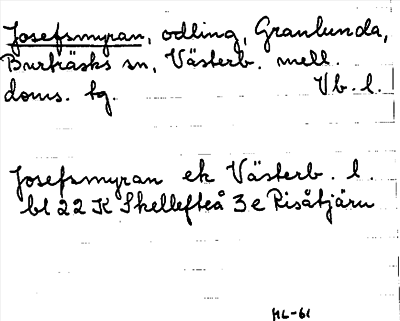 Josefsmyran, odling, Granlunda,
Burträsks sn, Västerb. mell.
doms. tg. Vb. l.
Josefsmyran ek Västerb. l.
bl 22 K Skellefteå 3 e Risåtjärn
HL-61